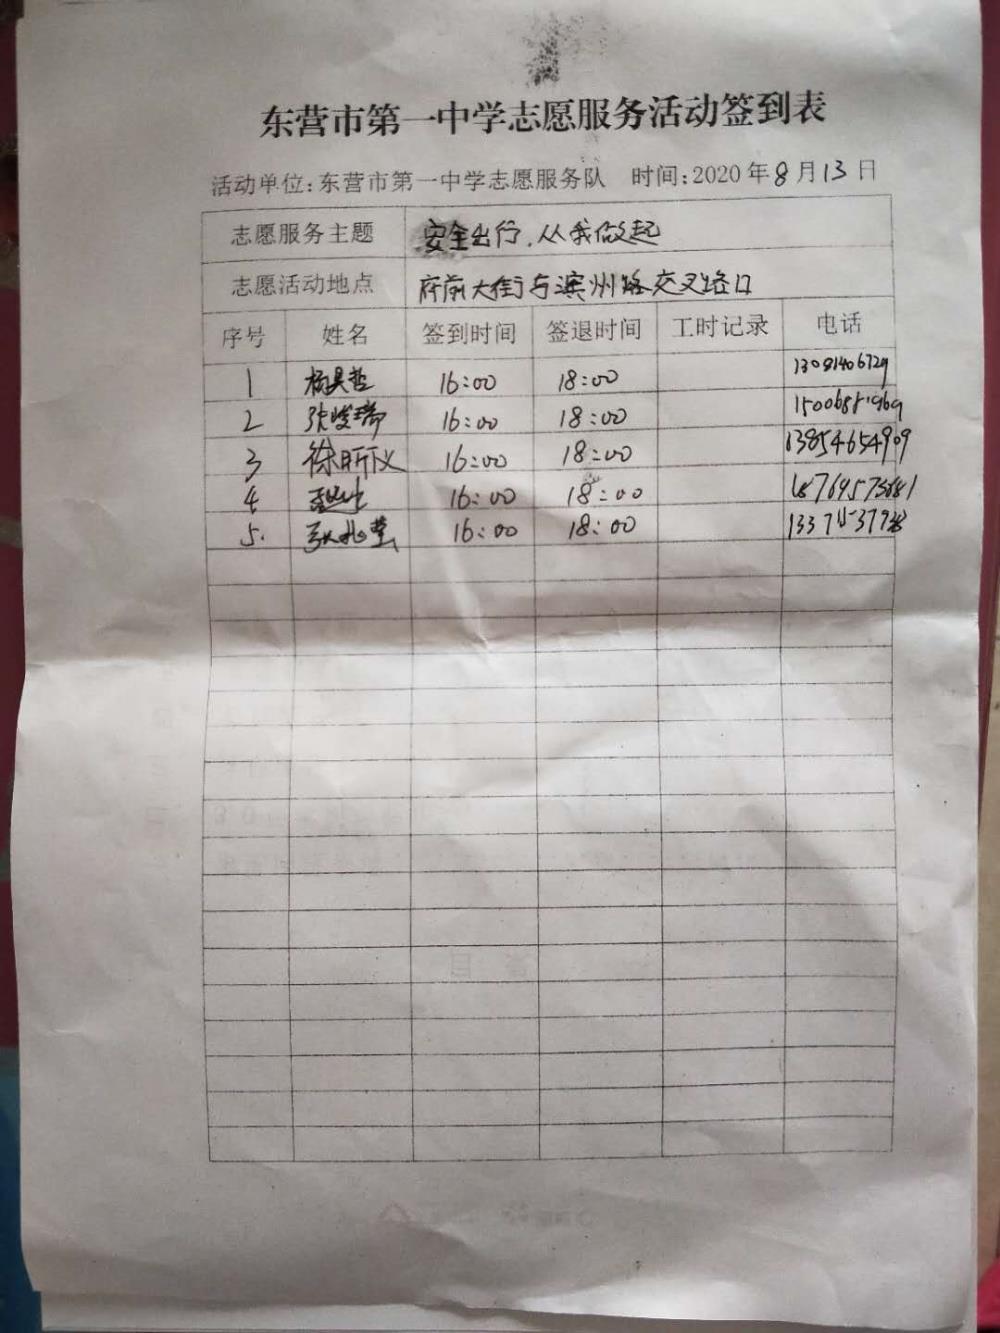 东营市第一中学志愿服务活动签到表
活动单位:东营市第一中学志愿服务队 时间:2020年8月13日
志愿服务主题 安全出行,从我做起
志愿活动地点 府前大街与滨州路交叉路口
序号 姓名 签到时间 签退时间 工时记录 电话
1 杨昊哲 16:00 18:00 13081406729
2 张峻瑞 16:00 18:00
3 徐昕仪 16:00 18:00 13854654909
4 16:00 18:00 18769573681
5. 16:00 18:00